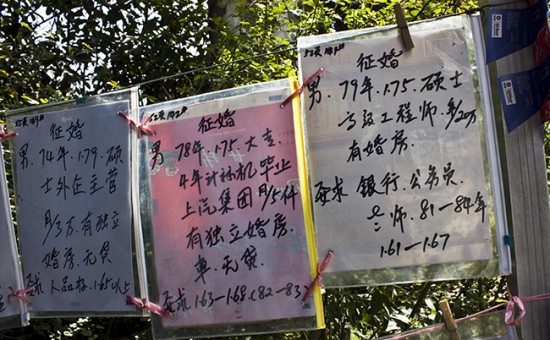 征婚
男.74年.1.79.硕
士外企主管
月/3万.有独立
婚房.无贷
人品好.1.65以上
征婚
男.78年.1.75.大专
4年计祘机毕业
上汽集团月/5仟
有独立婚房.
车.无贷.
要求1.63-1.68(82-83)
征婚
男.79年.1.75.硕士
高级工程师.月/2万
有婚房.
要求 银行.公务员.
老师.81-84年
1.61-1.67